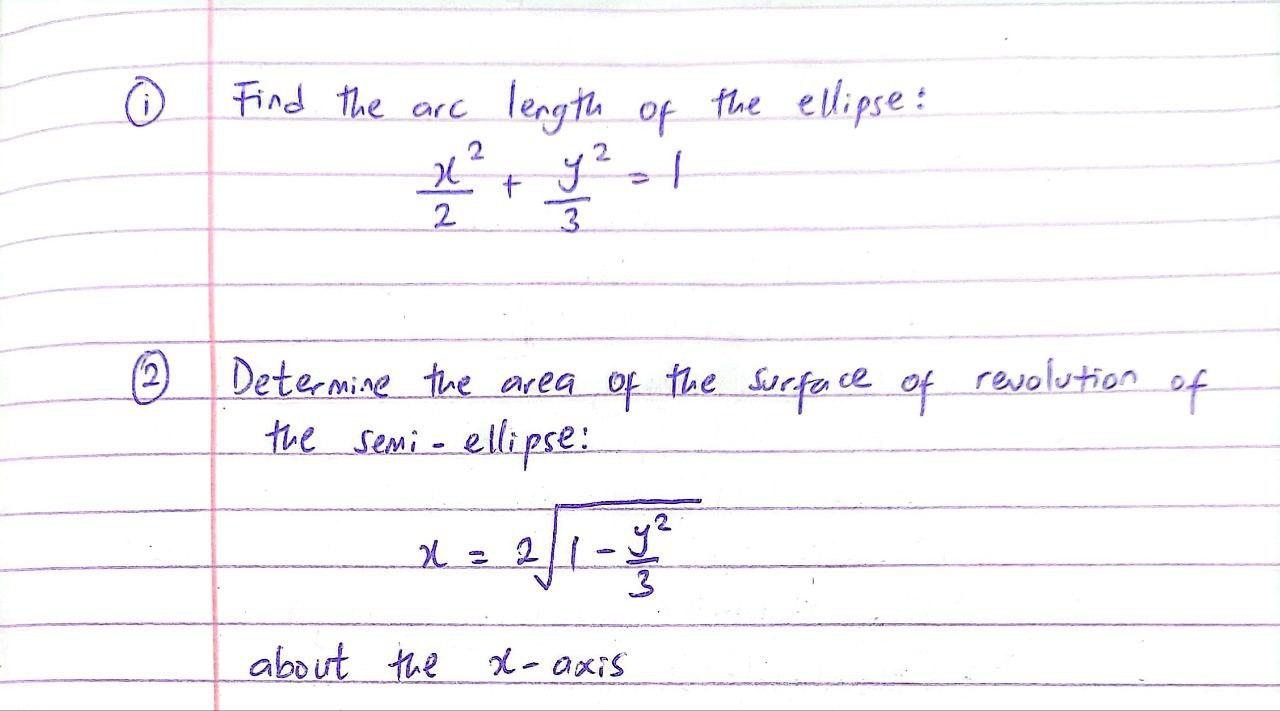 ① Find the arc length of the ellipse:
x²/2 + y²/3 = 1
② Determine the area of the surface of revolution of
the semi-ellipse:
x = 2√(1 - y²/3)
about the x-axis